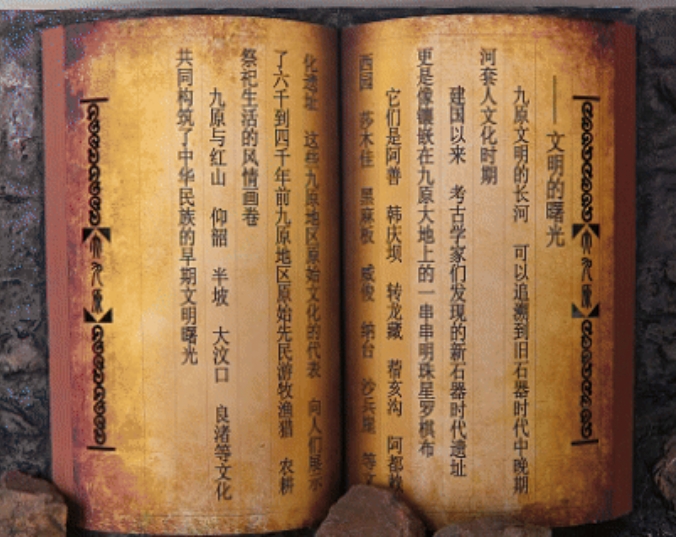 大九原
——文明的曙光
九原文明的长河 可以追溯到旧石器时代中晚期
河套人文化时期
建国以来 考古学家们发现的新石器时代遗址
更是像镶嵌在九原大地上的一串串明珠星罗棋布
它们是阿善 韩庆坝 转龙藏 亥沟 阿都
西园 莎木佳 黑麻板 威俊 纳台 沙兵崖 等文
化遗址 这些九原地区原始文化的代表 向人们展示
了六千到四千年前九原地区原始先民游牧渔猎 农耕
祭祀生活的风情画卷
九原与红山 仰韶 半坡 大汶口 良渚等文化
共同构筑了中华民族的早期文明曙光
大九原